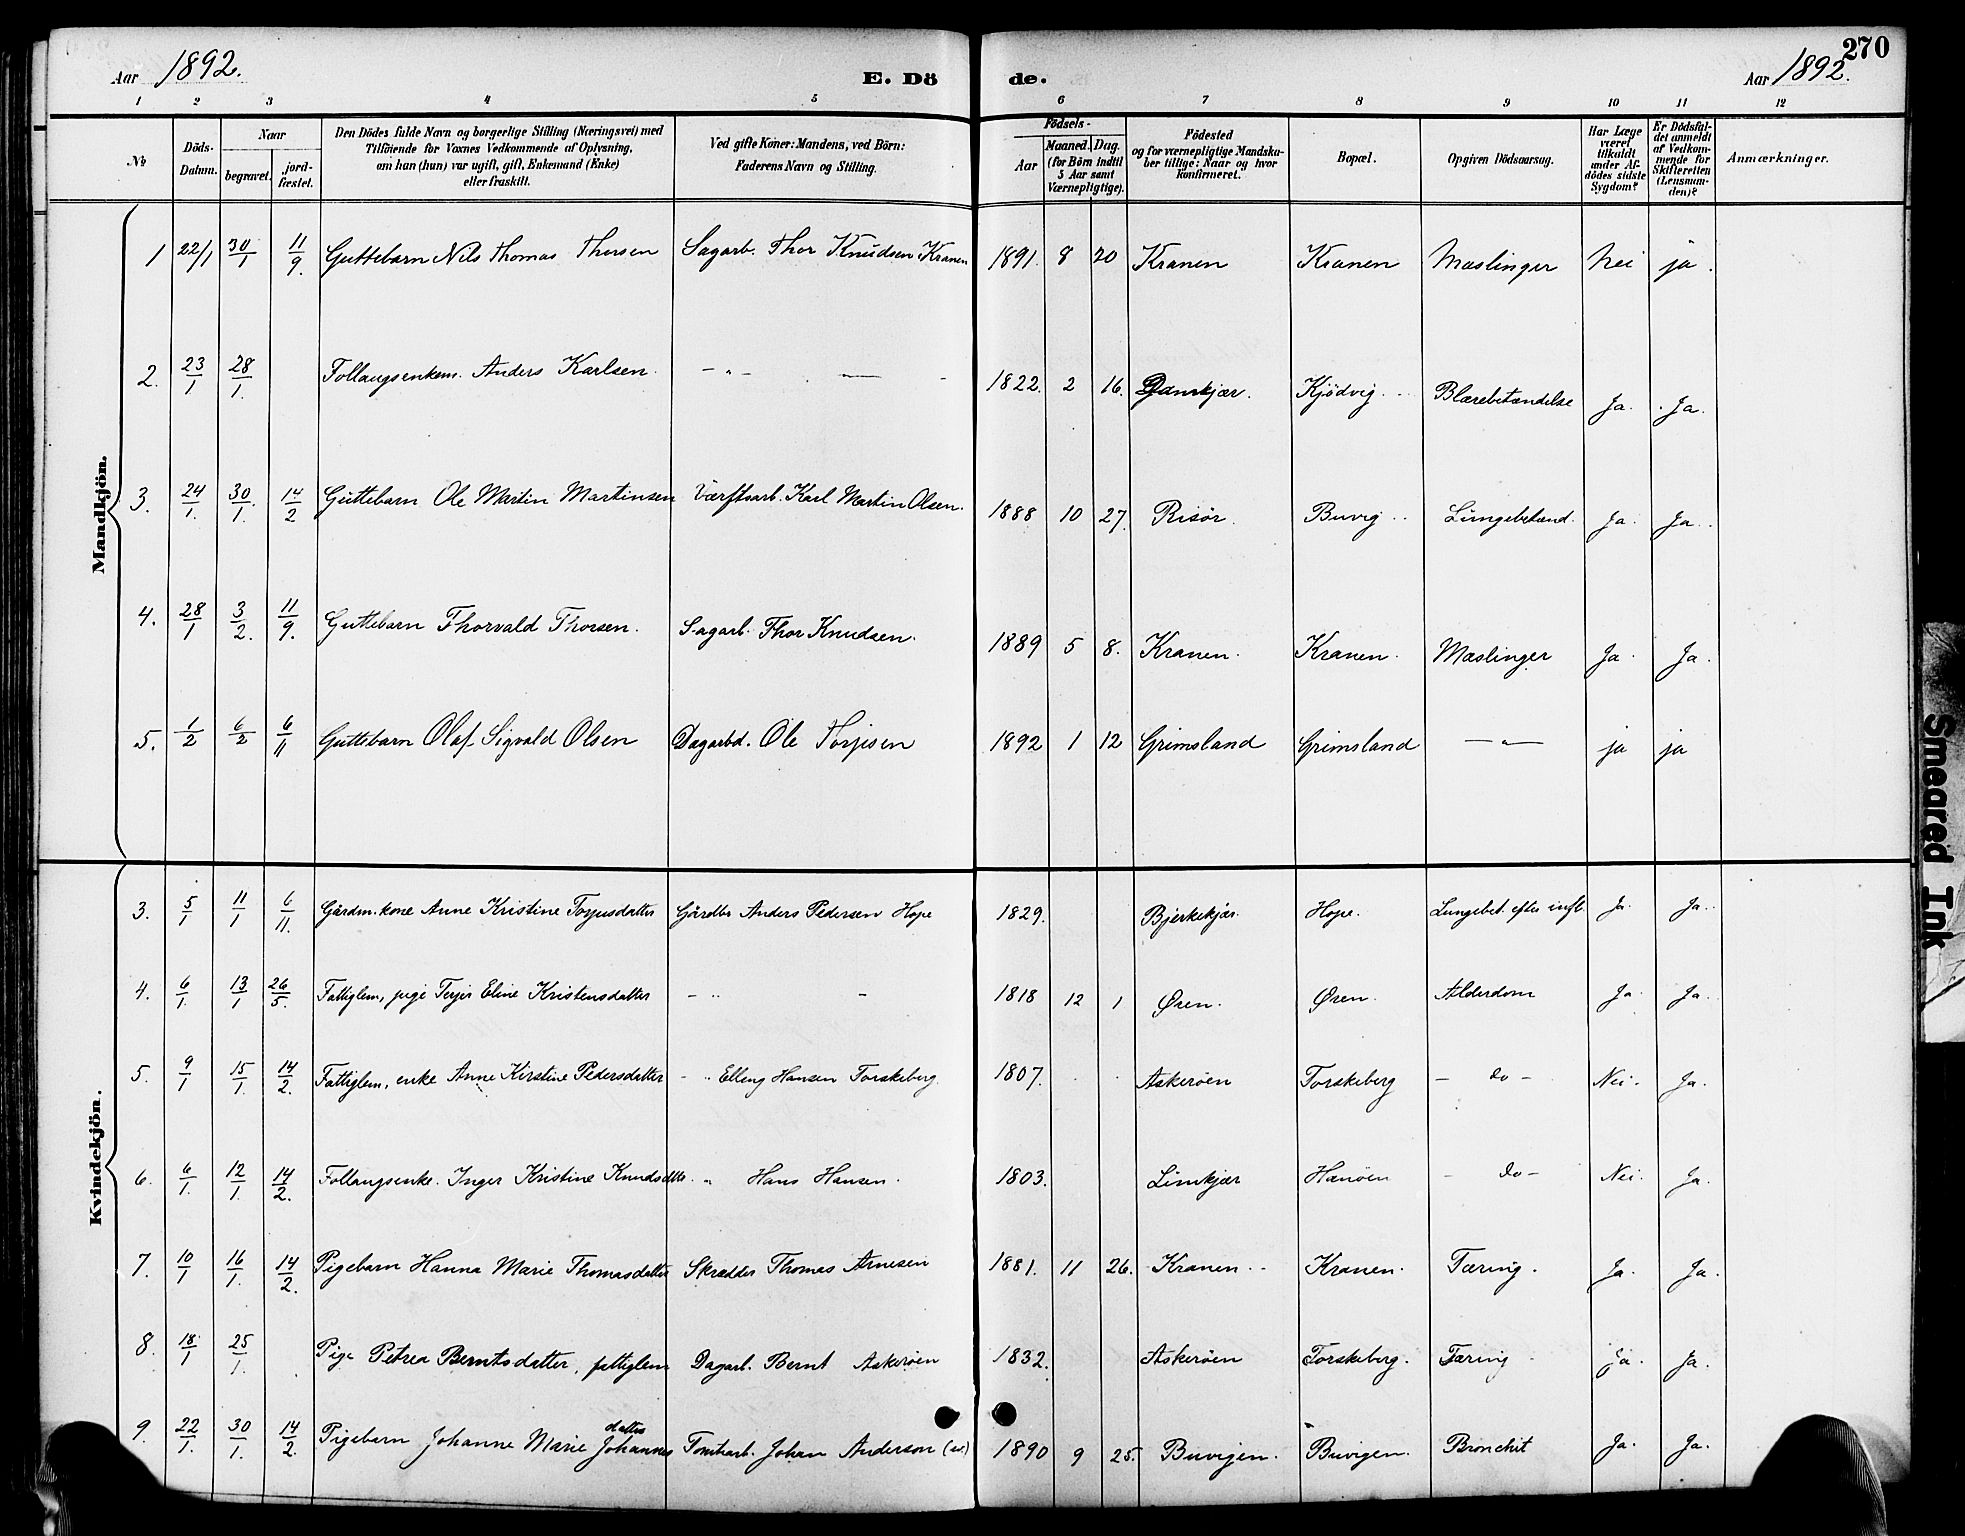 270
Aar 1892.
E. Dö de.
Aar 1892.
1 2 3 4 5 6 7 8 9 10 11 12
No
Döds-
Datum.
Naar
begravet.
jord-
fæstet.
Den Dödes fulde Navn og borgerlige Stilling (Næringsvei) med
Tilföiende for Voxnes Vedkommende af Oplysning,
om han (hun) var ugift, gift, Enkemand (Enke)
eller fraskilt.
Ved gifte Koner: Mandens, ved Börn:
Faderens Navn og Stilling.
Födsels-
Aar
Maaned. Dag.
(for Börn indtil
5 Aar samt
Værnepligtige).
Födested
og for værnepligtige Mandska-
ber tillige: Naar og hvor
konfirmeret.
Bopæl.
Opgiven Dödsaarsag.
Har Læge
været
tilkaldt
under Af-
dödes sidste
Sygdom?
Er Dödsfal-
det anmeldt
af Vedkom-
mende for
Skifteretten
(Lensman-
den)?
Anmærkninger.
Mandkjön.
1 22/1 30/1 11/9. Guttebarn Nils Thomas Thorsen Sagarb. Thor Knudsen Kranen 1891. 8 20 Kranen Kranen Mæslinger Nei ja.
2. 23/1 28/1. Follaugsenkem. Anders Karlsen. — " — — 1822. 2 16. Damkjær. Kjödvig. Blærebetændelse Ja. Ja.
3. 24/1. 30/1. 14/2 Guttebarn Ole Martin Martinsen Værftsarb. Karl Martin Olsen. 1888 10 27. Risör. Buvig Lungebetænd. Ja. Ja.
4. 28/1 3/2. 11/9. Guttebarn Thorvald Thorsen. Sagarb. Thor Knudsen. 1889 5 8. Kranen. Kranen. Mæslinger Ja. Ja.
5. 1/2 6/2 6/11 Guttebarn Olaf Sigvald Olsen Dagarbd. Ole Torjisen 1892 1 12 Grimsland Grimsland — " — ja ja
Kvindekjön.
3. 5/1 11/1 6/11. Gårdm. kone Anne Kristine Torjusdatter Gårdbr Anders Pedersen Hope 1829. Bjerkekjær. Hope. Lungebet. efter infl. Ja. Ja.
4. 6/1. 13/1 26/5. Fattiglem, pige Terjir Eline Kristensdatter — " — 1818 12 1 Øren. Øren. Alderdom Ja Ja.
5. 9/1 15/1. 14/2. Fattiglem, enke Anne Kirstine Pedersdatter — " Elleng Hansen Torskeberg. 1807. Askeröen Torskeberg — do — Nei. Ja.
6. 6/1. 12/1. 14/2. Follaugsenke. Inger Kristine Knudsdttr. " Hans Hansen. 1803. Limkjær Hanöen — do — Nei. Ja.
7. 10/1 16/1. 14/2. Pigebarn Hanna Marie Thomasdatter Skrædder Thomas Arnesen 1881. 11 26. Kranen Kranen. Tæring. Ja. Ja.
8. 18/1 25/1. Pige Petrea Berntsdatter, fattiglem Dagarb. Bernt Askeröen 1832. Askeröen Torskeberg. Tæring Ja. Ja.
9. 22/1. 30/1. 14/2. Pigebarn Johanne Marie Johannes datter Johan Anderson 1890 9 25. Buvigen. Buvigen. Bronchit Ja. Ja.
Smeared Ink